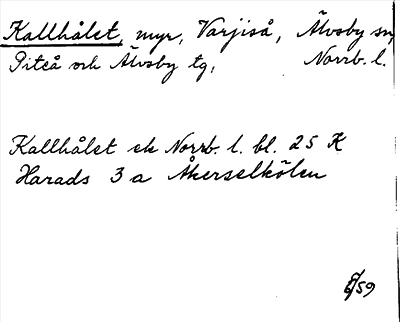 Kallhålet, myr, Varjiså, Älvsby sn,
Piteå och Älvsby tg, Norrb. l.
Kallhålet ek Norrb. l. bl. 25 K
Harads 3 a Åkerselkölen
/59